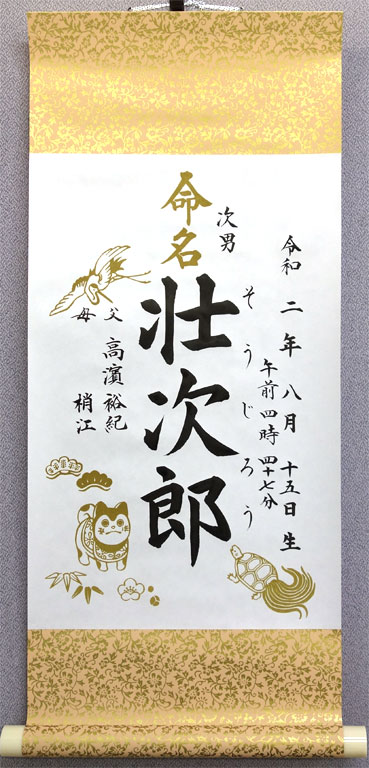 令和二年八月十五日生
午前四時四十七分
そうじろう
次男
命名
壮次郎
父高濱裕紀
母梢江